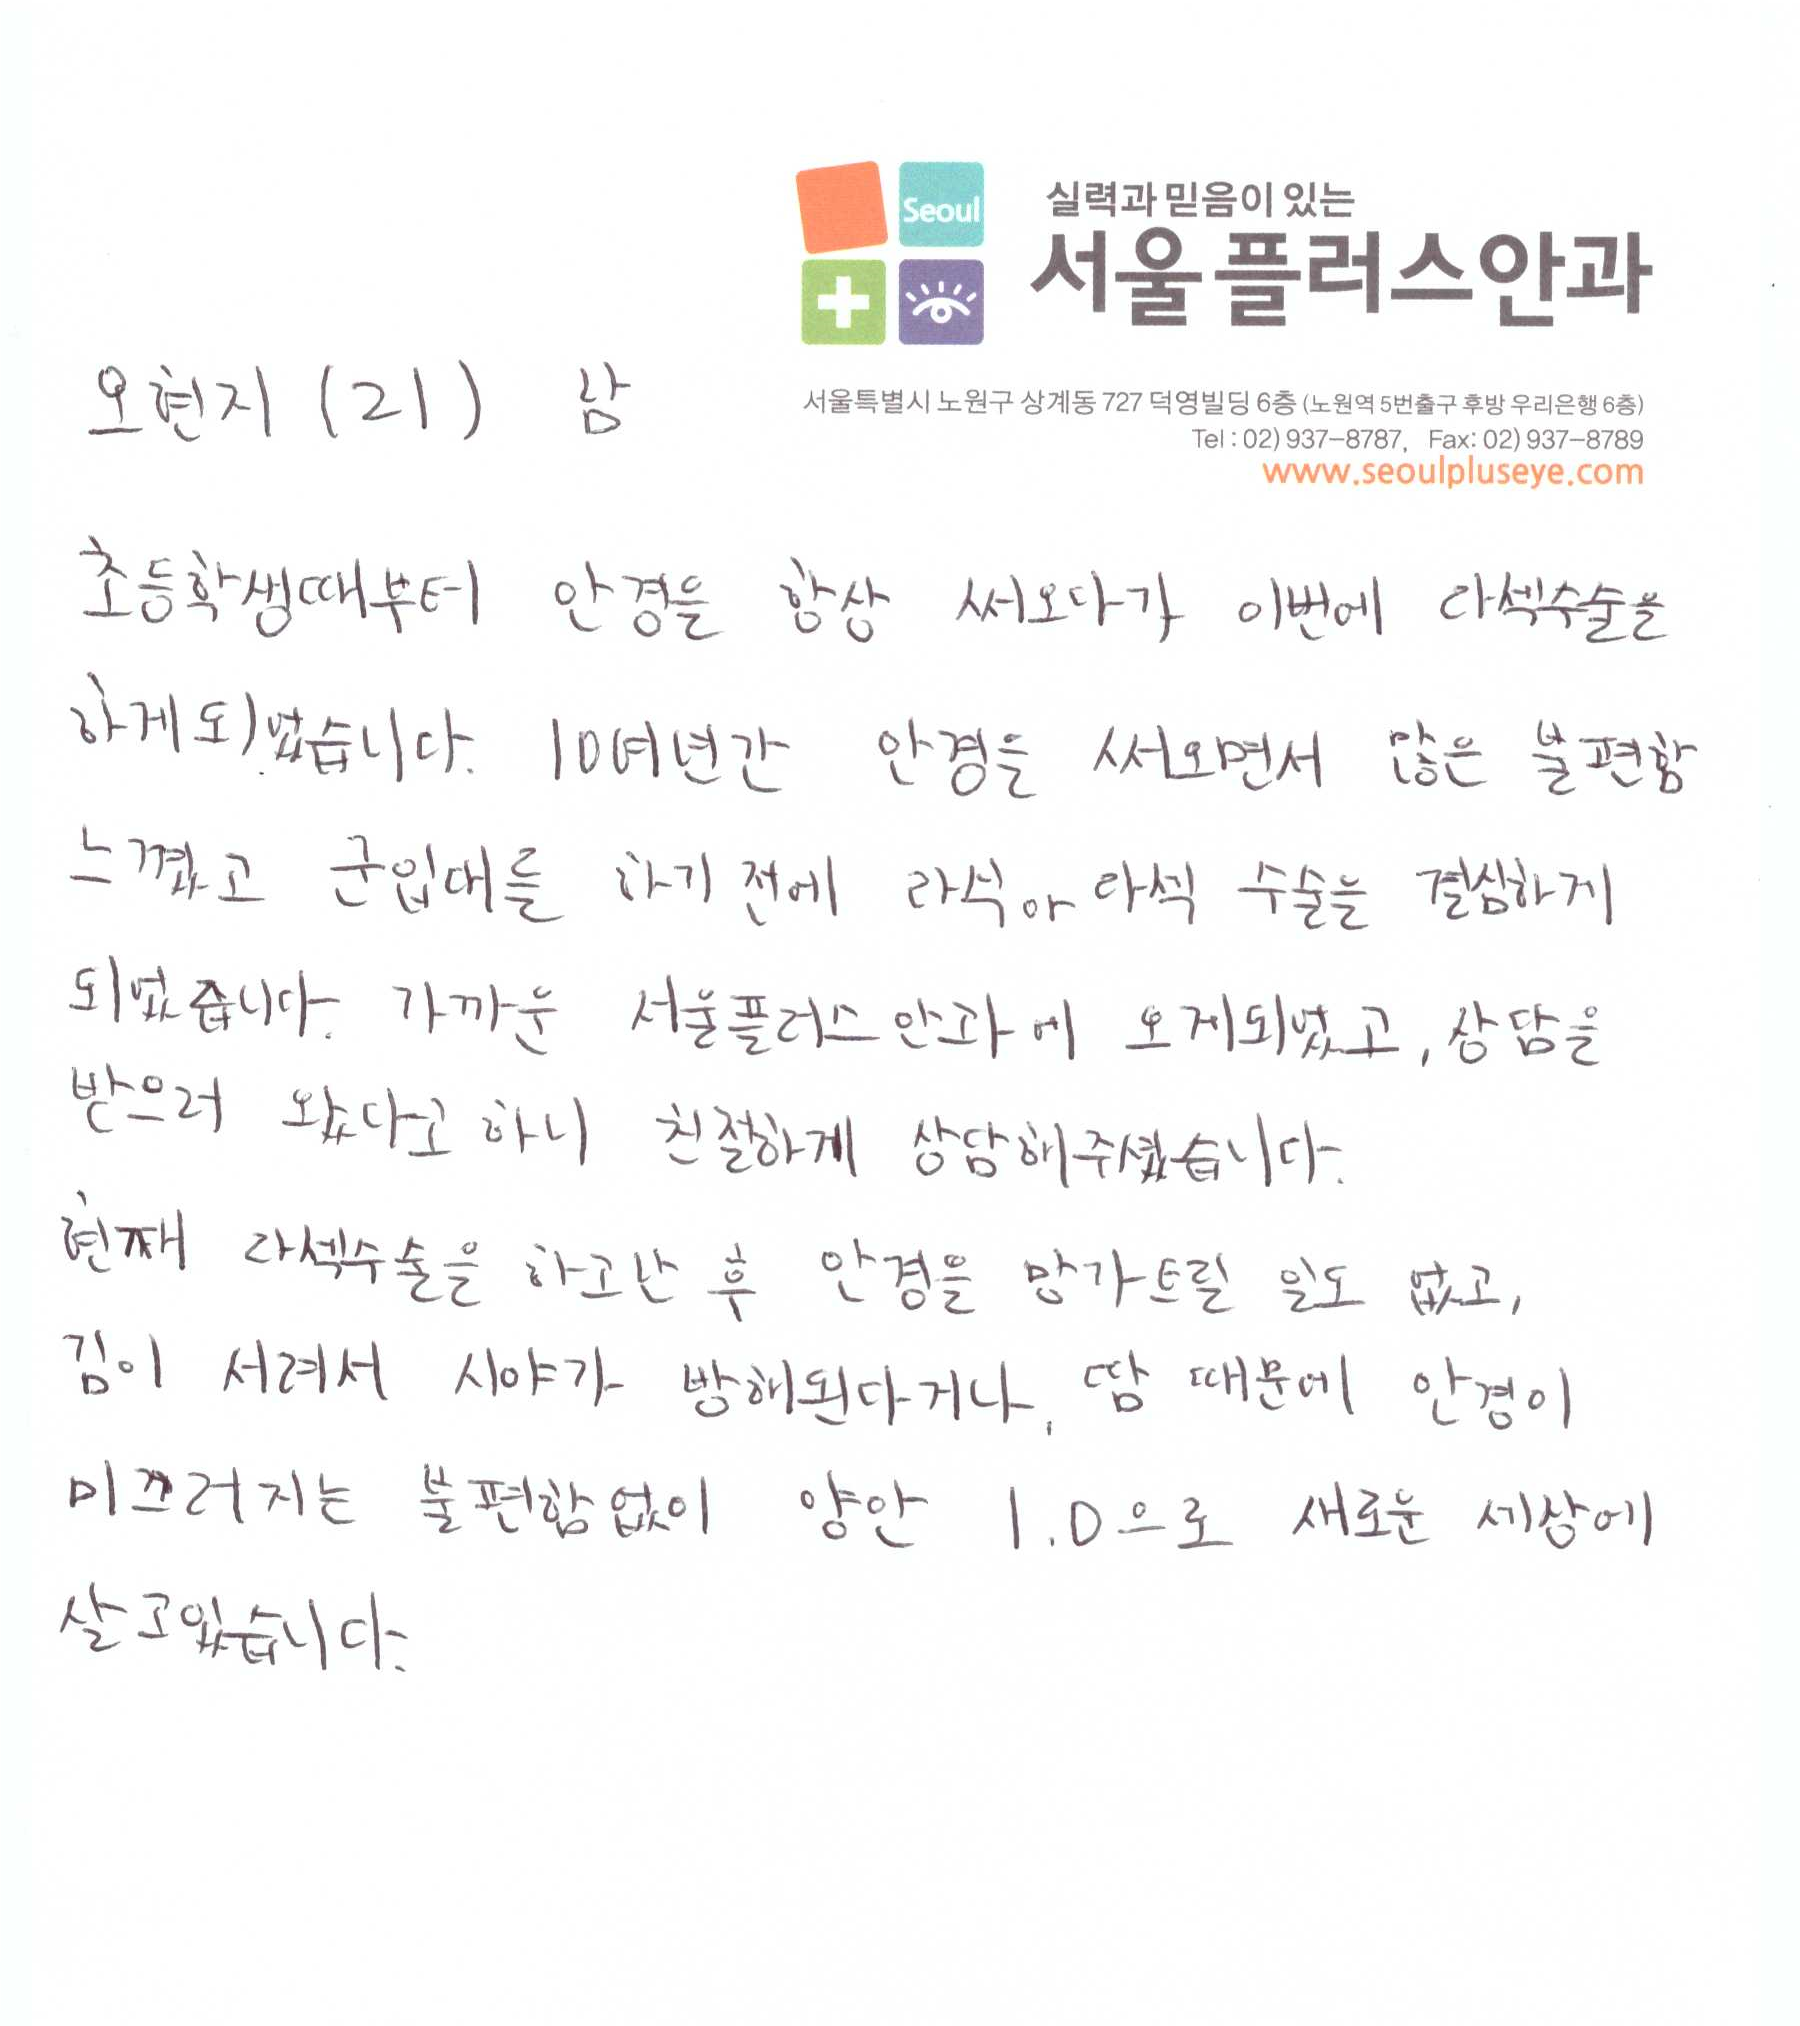 Seoul
실력과 믿음이 있는
서울플러스안과
서울특별시 노원구 상계동 727 덕영빌딩 6층 (노원역 5번출구 후방 우리은행 6층)
Tel : 02) 937-8787, Fax: 02) 937-8789
www.seoulpluseye.com
오현지 (21) 남
초등학생때부터 안경을 항상 써오다가 이번에 라섹수술을
하게되었습니다. 10여년간 안경을 써오면서 많은 불편함
느꼈고 군입대를 하기전에 라식아라섹 수술을 결심하게
되었습니다. 가까운 서울플러스안과에 오게되었고, 상담을
받으러 왔다고하니 친절하게 상담해주셨습니다.
현째 라섹수술을 하고난 후 안경을 망가트릴 일도 없고,
김이 서려서 시야가 방해된다거나, 땀 때문에 안경이
미끄러지는 불편함없이 양안 1.0으로 새로운 세상에
살고있습니다.